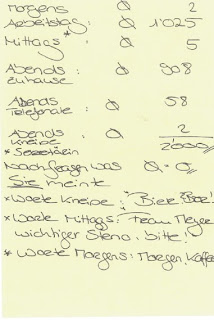 Morgens Ø 2
Arbeitstag: Ø 1'025
Mittags*: Ø 5
Abends zuhause Ø 908
Abends Telefonate: Ø 58
Abends Kneipe Ø 2
2000
* Sekretärin
Nachfragen was Ø = 0
Sie meinte
* Worte Kneipe: "Bier, Bier!
* Worte Mittags: Frau Meyer
wichtiger Steno, bitte!
* Worte Morgens: Morgen! Kaffee